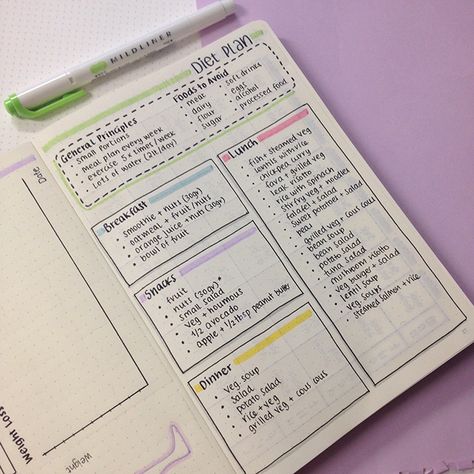 MILDLINER
Diet Plan
General Principles
small portions
meal plan every week
exercise 5x times/week
Lots of water (2L/day)
Foods to Avoid
meat
dairy
flour
sugar
soft drinks
eggs
alcohol
processed food
Breakfast
smoothie + nuts (30gr)
oatmeal + fruit/nuts
orange juice + nuts (30gr)
bowl of fruit
Snacks
fruit
nuts (30gr)*
small salad
veg + houmous
1/2 avocado
apple + 1/2 tbsp peanut butter
Dinner
veg soup
salad
potato salad
rice + veg
grilled veg + cous cous
Lunch
fish + steamed veg
lentils w/ rice
chickpea curry
fava + grilled veg
leak risotto
rice with spinach
stirfry veg + noodles
falafel + salad
sweet potatoes + salad
peas
grilled veg + cous cous
bean soup
bean salad
potato salad
tuna salad
mushroom risotto
veg burger + salad
lentil soup
veg soups
steamed salmon + rice
Date
Weight Loss
Weight